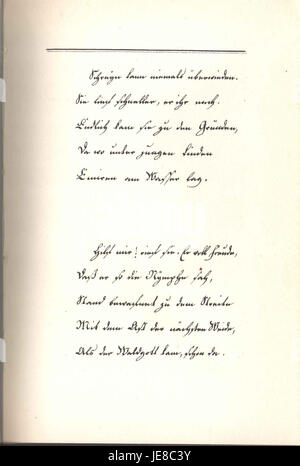 Schreyn kann niemals überwinden.
Sie lief schneller, er ihr nach.
Endlich kam sie zu den Gründen,
Da wo unter jungen Linden
Emiren am Wasser lag.
Helft mir! rief sie. Er voll Freude,
Daß er so die Nymphe sah,
Stand bewaffnet zu dem Streite
Mit dem Ast der nächsten Weide,
Als der Waldgott kam, schon da.
alamy
JE8C3Y